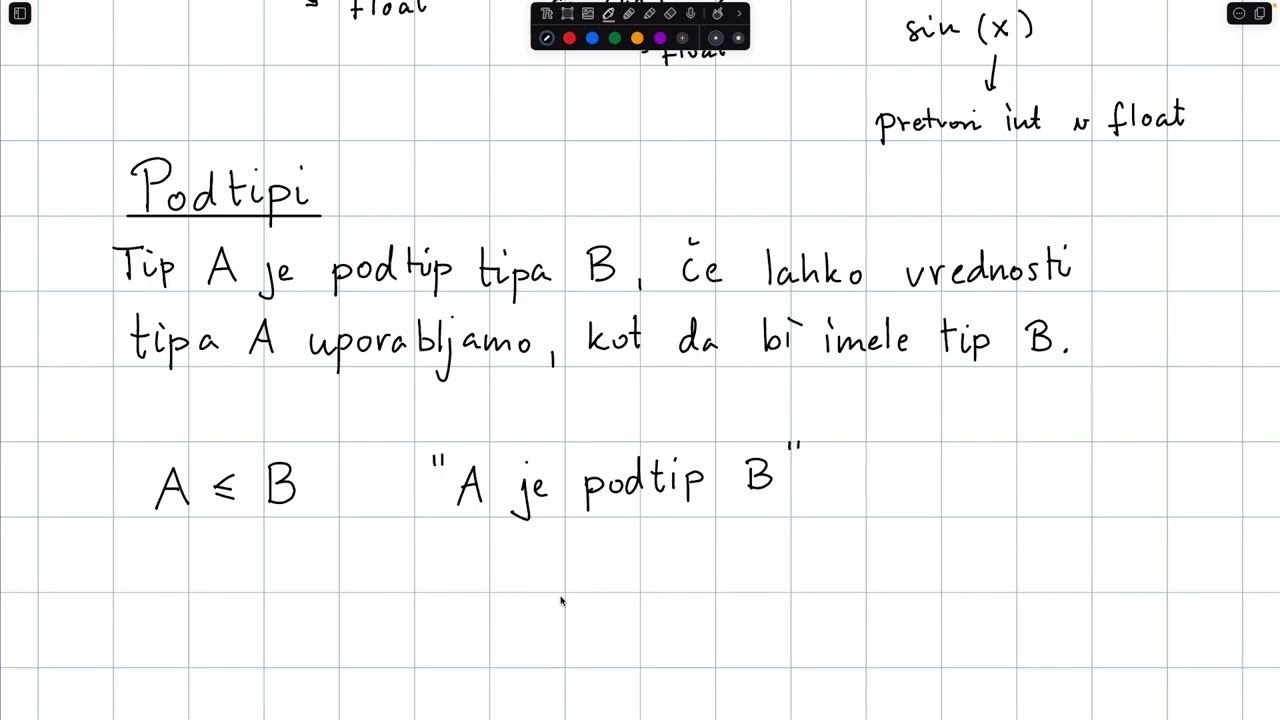 float
float
sin (x)
pretvori int v float
Podtipi
Tip A je podtip tipa B, če lahko vrednosti
tipa A uporabljamo, kot da bi imele tip B.
A ≤ B "A je podtip B"